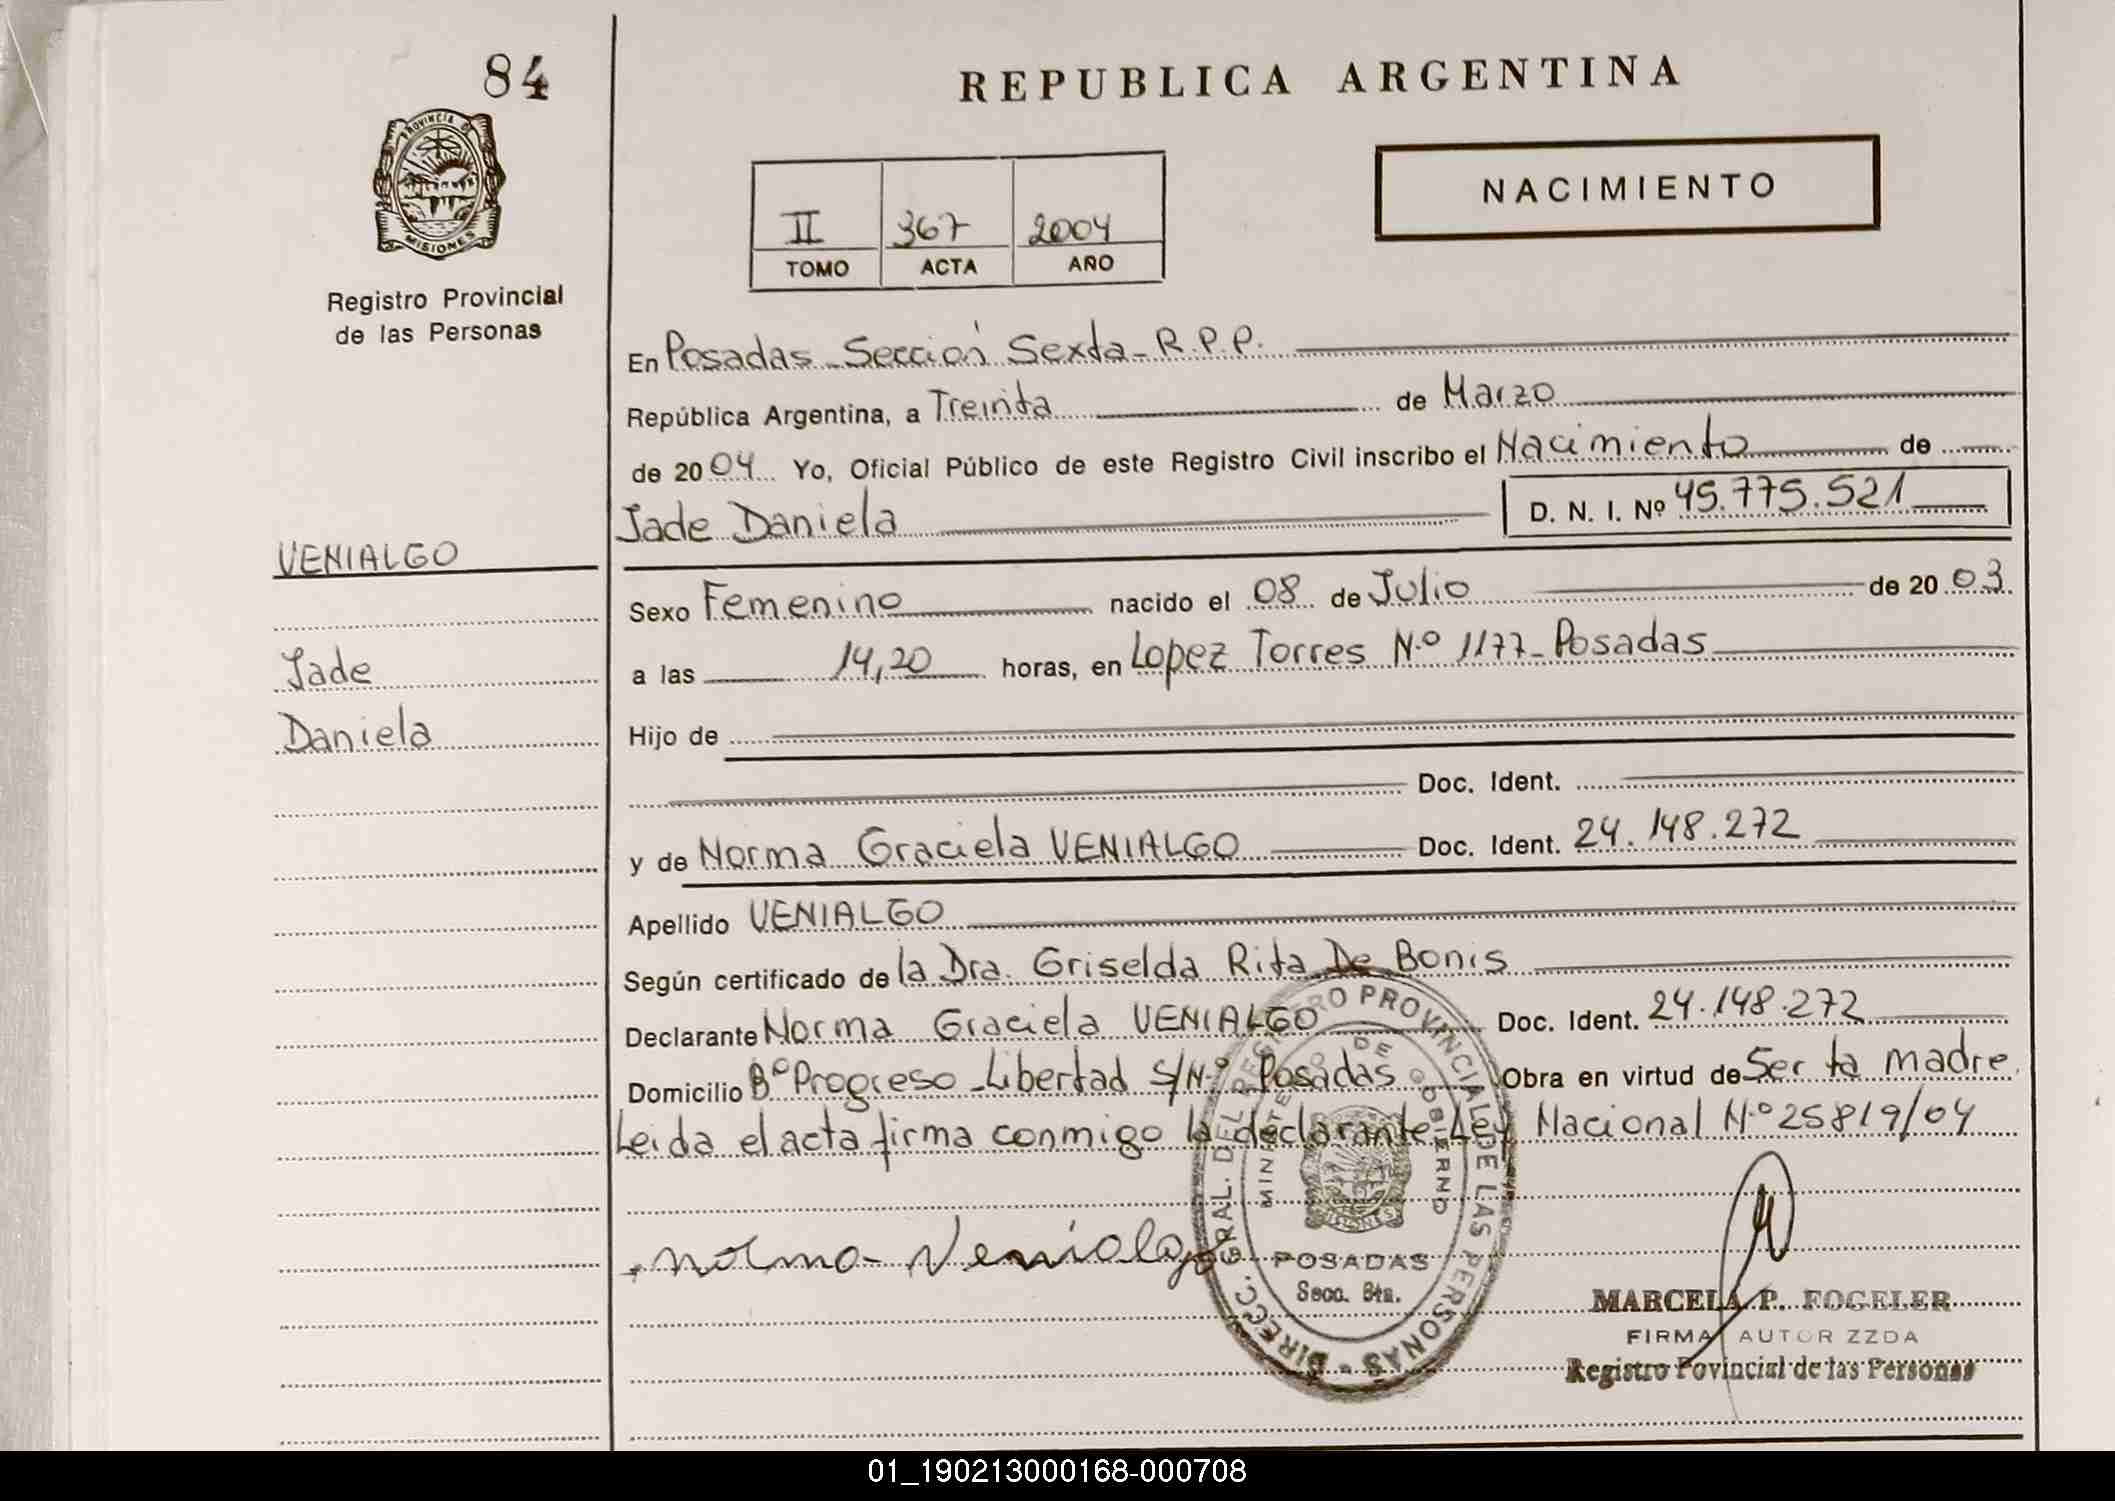 84
REPUBLICA ARGENTINA
PROVINCIA DE
MISIONES
Registro Provincial
de las Personas
NACIMIENTO
II 367 2004
TOMO ACTA AÑO
En Posadas - Sección Sexta - R.P.P.
República Argentina, a Treinta de Marzo
de 2004 Yo, Oficial Público de este Registro Civil inscribo el Nacimiento de
Jade Daniela D. N. I. Nº 45.775.521
VENIALGO
Sexo Femenino nacido el 08 de Julio de 2003
Jade
a las 14,20 horas, en Lopez Torres N.º 1177 - Posadas
Daniela
Hijo de
Doc. Ident.
y de Norma Graciela VENIALGO Doc. Ident. 24.148.272
Apellido VENIALGO
Según certificado de la Dra. Griselda Rita De Bonis
Declarante Norma Graciela VENIALGO Doc. Ident. 24.148.272
Domicilio Bº Progreso - Libertad S/N.º Posadas Obra en virtud de Ser la madre.
Leida el acta firma conmigo la declarante. Ley Nacional N.º 25819/04
Norma Venialgo
DIRECC. GRAL. DEL REGISTRO PROVINCIAL DE LAS PERSONAS -
MINISTERIO DE GOBIERNO
MISIONES
POSADAS
Secc. 6ta.
MARCELA P. FOGELER
FIRMA AUTORIZZDA
Registro Povincial de las Personas
01_190213000168-000708